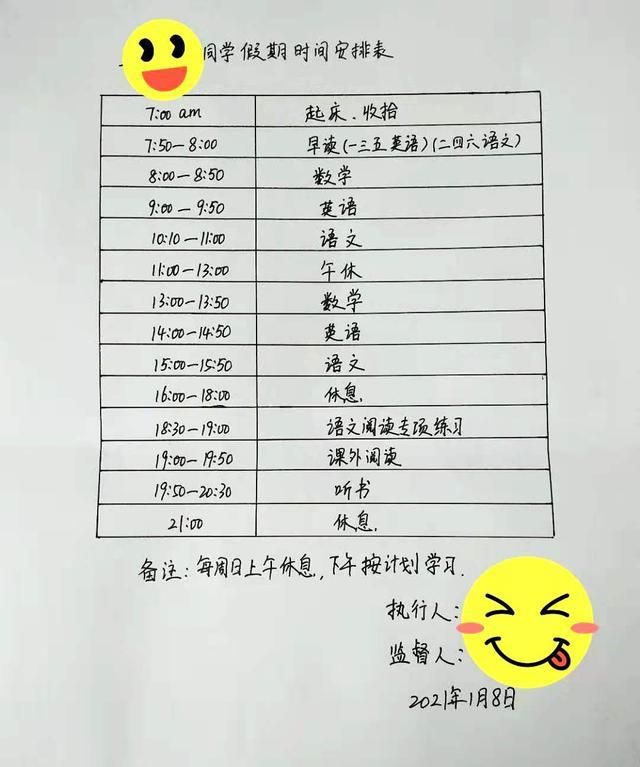 同学假期时间安排表
7:00 am 起床、收拾
7:50—8:00 早读(一三五英语)(二四六语文)
8:00—8:50 数学
9:00—9:50 英语
10:10—11:00 语文
11:00—13:00 午休
13:00—13:50 数学
14:00—14:50 英语
15:00—15:50 语文
16:00—18:00 休息.
18:30—19:00 语文阅读专项练习
19:00—19:50 课外阅读
19:50—20:30 听书
21:00 休息.
备注:每周日上午休息,下午按计划学习.
执行人:
监督人:
2021年1月8日